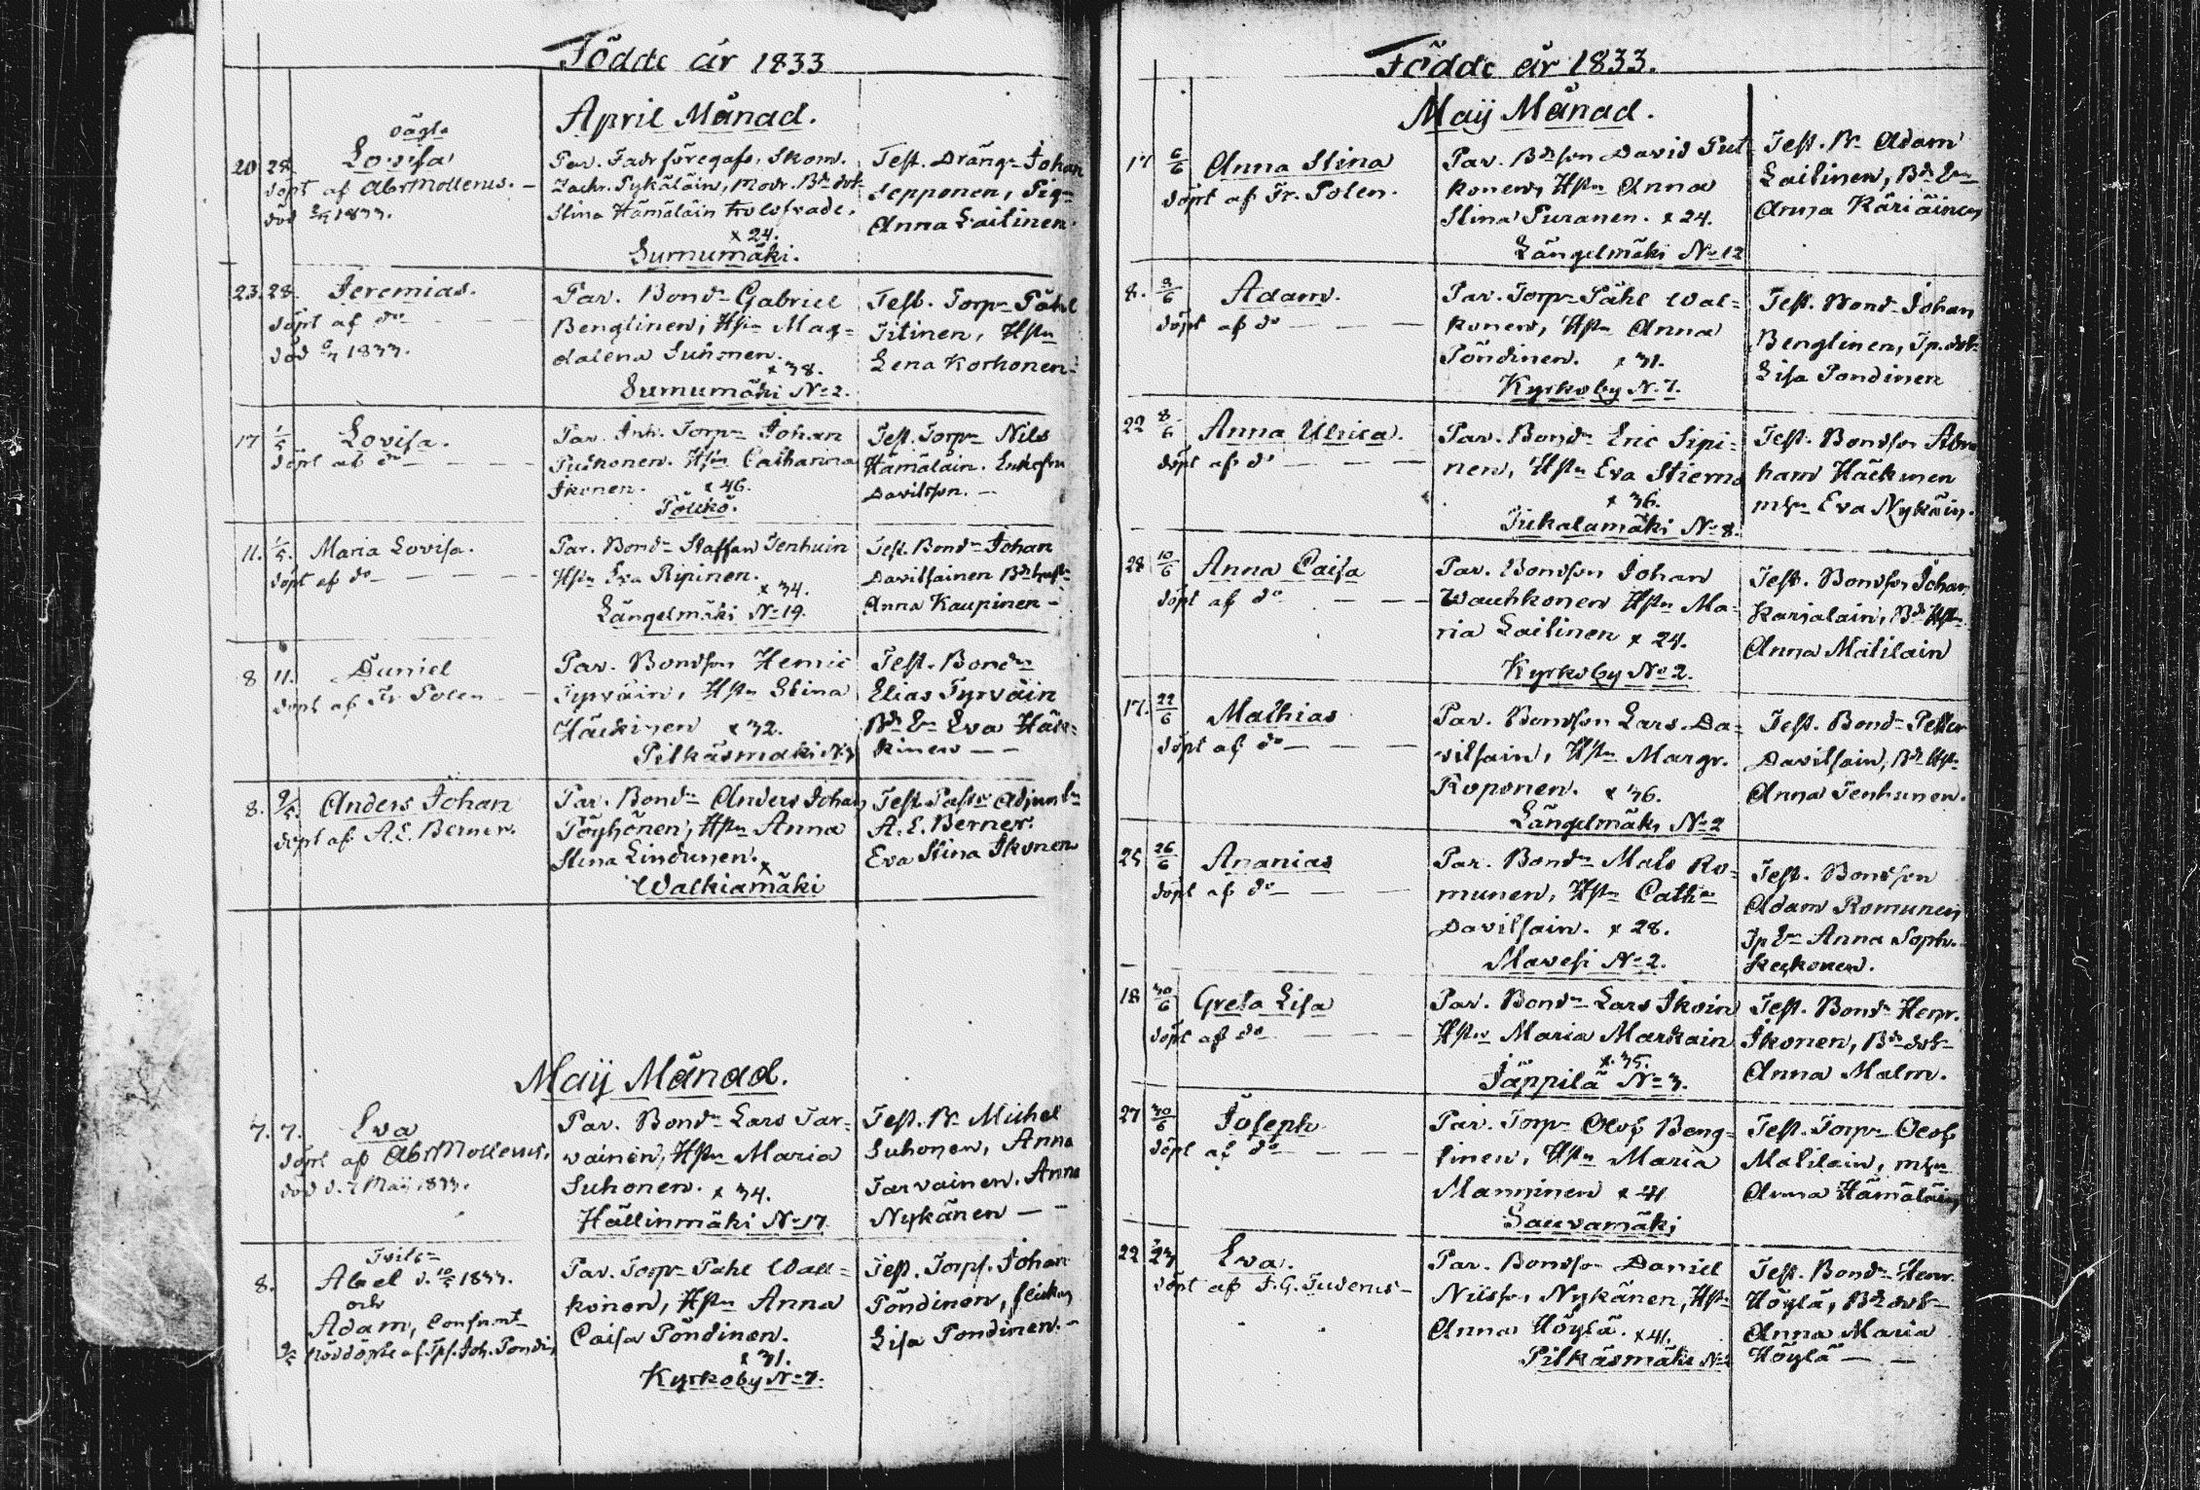 Födde år 1833
April Månad.
oägta
20 28. Lovisa
döpt af Abr Mollerus. —
död 1833.
Par. Fadr föregafs. Skom.
Zachr. Pykäläin, Modr. Bd dot
Stina Hämäläin
x 24.
Surnumäki.
Test. Dräng Johan
Sepponen, Pig
Anna Laitinen.
23. 28. Jeremias.
döpt af do
död 1833.
Par. Bond Gabriel
Benglinen, Hstn Mag=
dalena Suhonen.
x 38.
Surnumäki No 2.
Test. Torp Påhl
Titinen, Hstn
Lena Korhonen
17 1/5 Lovisa.
döpt af do
Par. Inh. Torp Johan
Puckonen. Hstn Catharina
Ikonen. x 46.
Test. Torp Nils
Hämäläin.
Davidsson. —
11. 1/5. Maria Lovisa.
döpt af do
Par. Bond Staffan Tenhuin
Hstn Eva Ripinen.
x 34.
Längelmäki No 19.
Test. Bond Johan
Davitsainen Bd hust
Anna Kaupinen —
8 11. Daniel
döpt af Fr Polen —
Par. Bondson Henric
Tyrväin, Hstn Stina
Häckinen x 32.
Pitkäsmäki
Test. Bond
Elias Tyrväin
Bd Eva Häk=
kinen — —
8. 9/5. Anders Johan
döpt af A. E. Berner.
Par. Bond Anders Johan
Pöyhönen, Hstn Anna
Stina Lindunen. x
Walkiamäki
Test. Past Adjunkt
A. E. Berner.
Eva Stina Ikonen
Maij Månad.
7. 7. Eva
döpt af Abr Mollerus,
död d. 7 Maij 1833.
Par. Bond Lars Tar=
vainen, Hstn Maria
Suhonen. x 34.
Hällinmäki No 17.
Test. Br Michel
Suhonen, Anna
Tarvainen, Anna
Nykänen — —
8. Tvill
Abel d. 10/5 1833.
och
Adam, Confirmt
9/5 nöddöpte af Tps. Joh. Pondi
Par. Torp Påhl Wall=
konen, Hstn Anna
Caisa Pöndinen.
x 31.
Kyrkoby No 7.
Test. Torps. Johan
Pöndinen, flickan
Lisa Pondinen. —
Födde år 1833.
Maij Månad.
17 6/6 Anna Stina
döpt af Fr. Polen.
Par. Bdson David Put
konen, Hstn Anna
Stina Puranen. x 24.
Längelmäki No 12
Test. Br Adam
Laitinen, Bd
Anna Käriäinen
8. 8/6 Adam.
döpt af do
Par. Torp Påhl Wal=
konen, Hstn Anna
Pöndinen. x 31.
Kyrkoby N. 7.
Test. Bond Johan
Benglinen, Tp. dot
Lisa Pondinen
22 8/6 Anna Ulrica.
döpt af do
Par. Bond Eric Sipi=
nen, Hstn Eva Stierna
x 36.
Tukalamäki No 8.
Test. Bondson Abra
ham Häckinen
Eva Nykäin.
28 10/6 Anna Caisa
döpt af do
Par. Bondson Johan
Wauhkonen Hstn Ma=
ria Laitinen x 24.
Kyrkoby No 2.
Test. Bondson Johan
Karjalain, Bd Hstn
Anna Matilain
17. 22/6 Mathias
döpt af do
Par. Bondson Lars Da=
vitsain, Hstn Margr.
Roponen. x 36.
Längelmäki No 2
Test. Bond Petter
Davitsain, Bd Hstn
Anna Tenhunen.
25 26/6 Ananias
döpt af do
Par. Bond Mats Ro=
munen, Hstn Cath
Davitsain. x 28.
Mavesi No 2.
Test. Bondson
Adam Romunen
Tp Anna Soph.
Keckonen.
18 30/6 Greta Lisa
döpt af do
Par. Bond Lars Ikoin
Hstn Maria Markain
x. 35.
Jäppilä No 3.
Test. Bond Henr.
Ikonen, Bd dot
Anna Malm.
27 30/6 Joseph
döpt af do
Par. Torp Olof Beng=
linen, Hstn Maria
Manninen x 41
Sauvamäki
Test. Torp Olof
Matilain,
Anna Hämäläin
22 Eva.
döpt af F. G. Tuderus —
Par. Bondson Daniel
Nilsson Nykänen, Hstn
Anna Höylä. x 41.
Pitkäsmäki
Test. Bond Henr.
Höylä, Bd dot
Anna Maria
Höylä — —